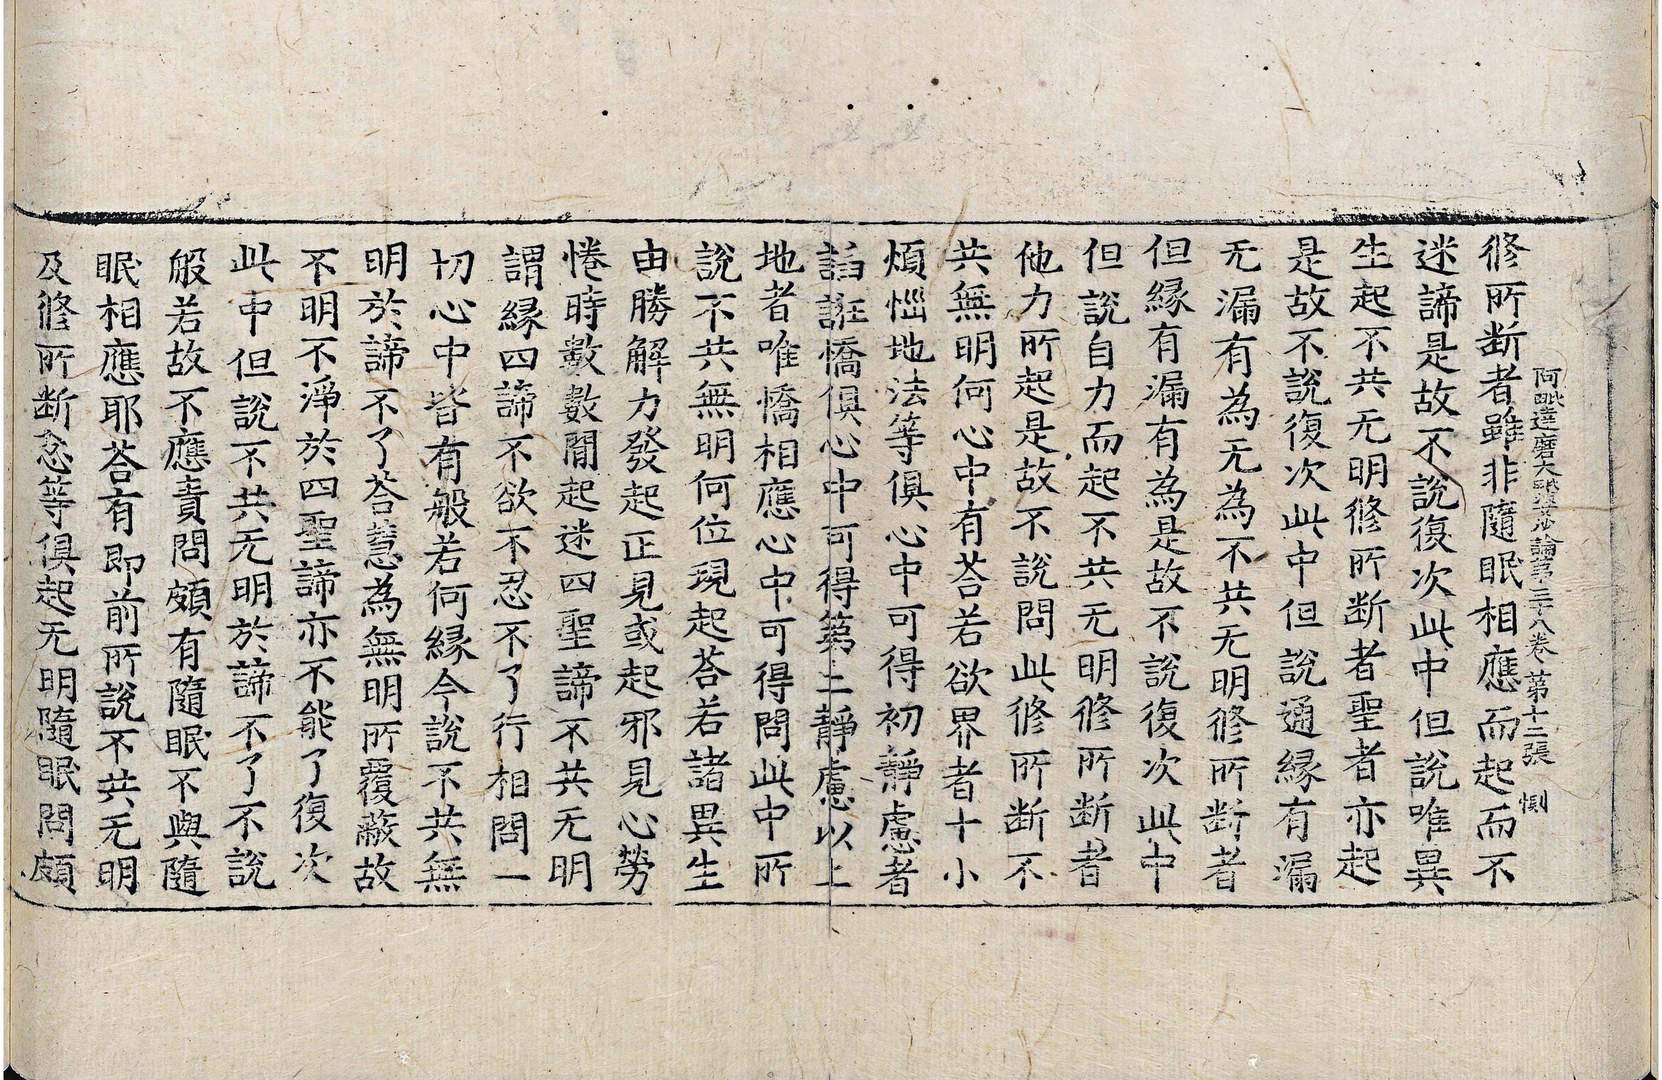 阿毗達磨大毗婆沙論第三十八卷 第十二張 惻
修所断者雖非隨眠相應而起而不
迷諦是故不說復次此中但說唯異
生起不共无明修所断者聖者亦起
是故不說復次此中但說通縁有漏
无漏有為无為不共无明修所断者
但縁有漏有為是故不說復次此中
但說自力而起不共无明修所断者
他力所起是故不說問此修所断不
共無明何心中有荅若欲界者十小
煩惱地法等俱心中可得初靜慮者
諂誑憍俱心中可得第二靜慮以上
地者唯憍相應心中可得問此中所
說不共無明何位現起荅若諸異生
由勝解力發起正見或起邪見心勞
惓時數數閒起迷四聖諦不共无明
謂縁四諦不欲不忍不了行相問一
切心中皆有般若何縁今說不共無
明於諦不了荅慧為無明所覆蔽故
不明不淨於四聖諦亦不能了復次
此中但說不共无明於諦不了不說
般若故不應責問頗有隨眠不與隨
眠相應耶荅有即前所說不共无明
及修所断忿等俱起无明隨眠問頗